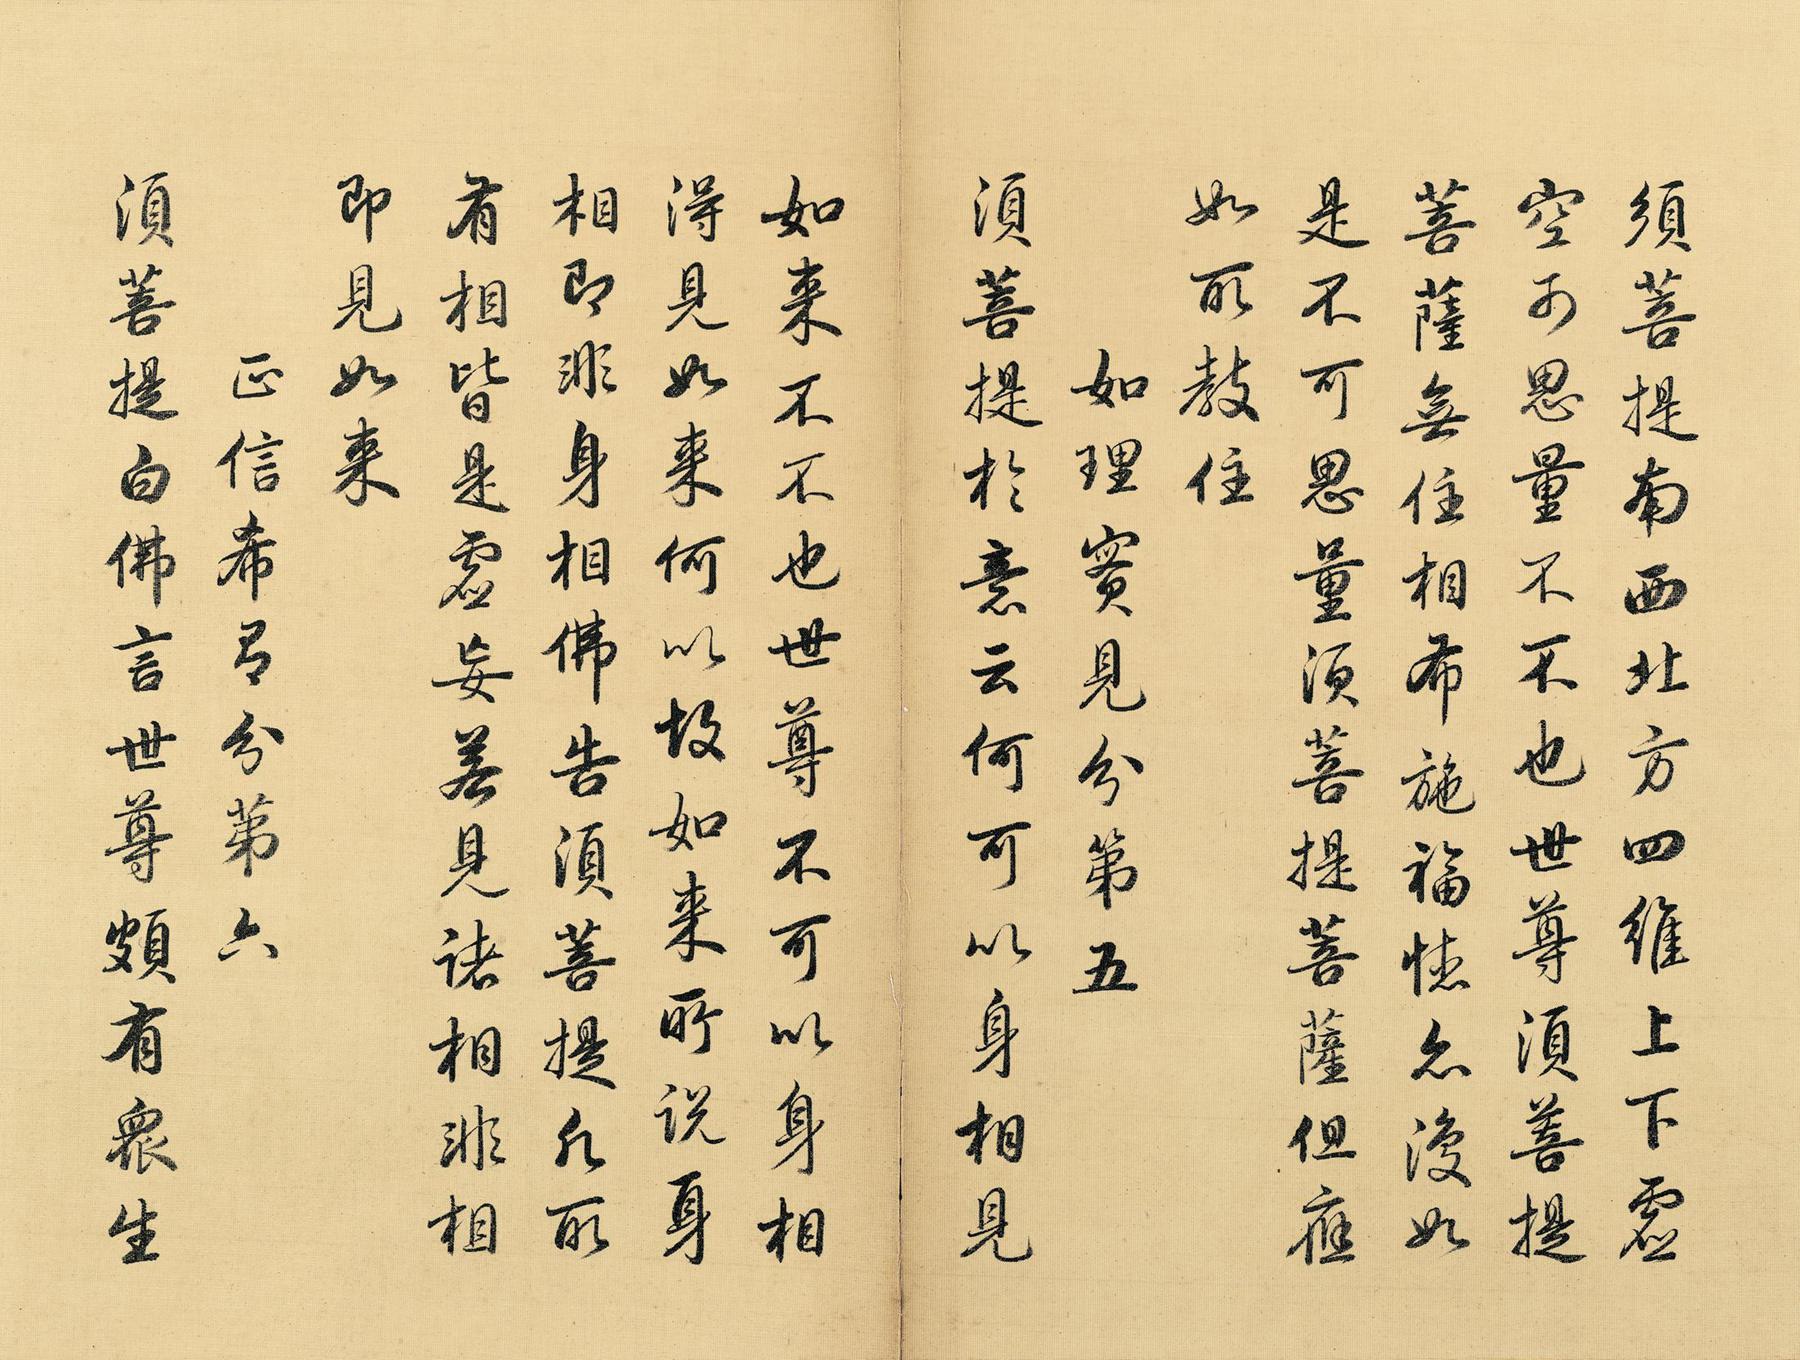 須菩提南西北方四維上下虛
空可思量不不也世尊須菩提
菩薩無住相布施福德亦復如
是不可思量須菩提菩薩但應
如所教住
如理實見分第五
須菩提於意云何可以身相見
如来不不也世尊不可以身相
得見如来何以故如来所說身
相即非身相佛告須菩提凡所
有相皆是虛妄若見諸相非相
即見如来
正信希有分第六
須菩提白佛言世尊頗有眾生